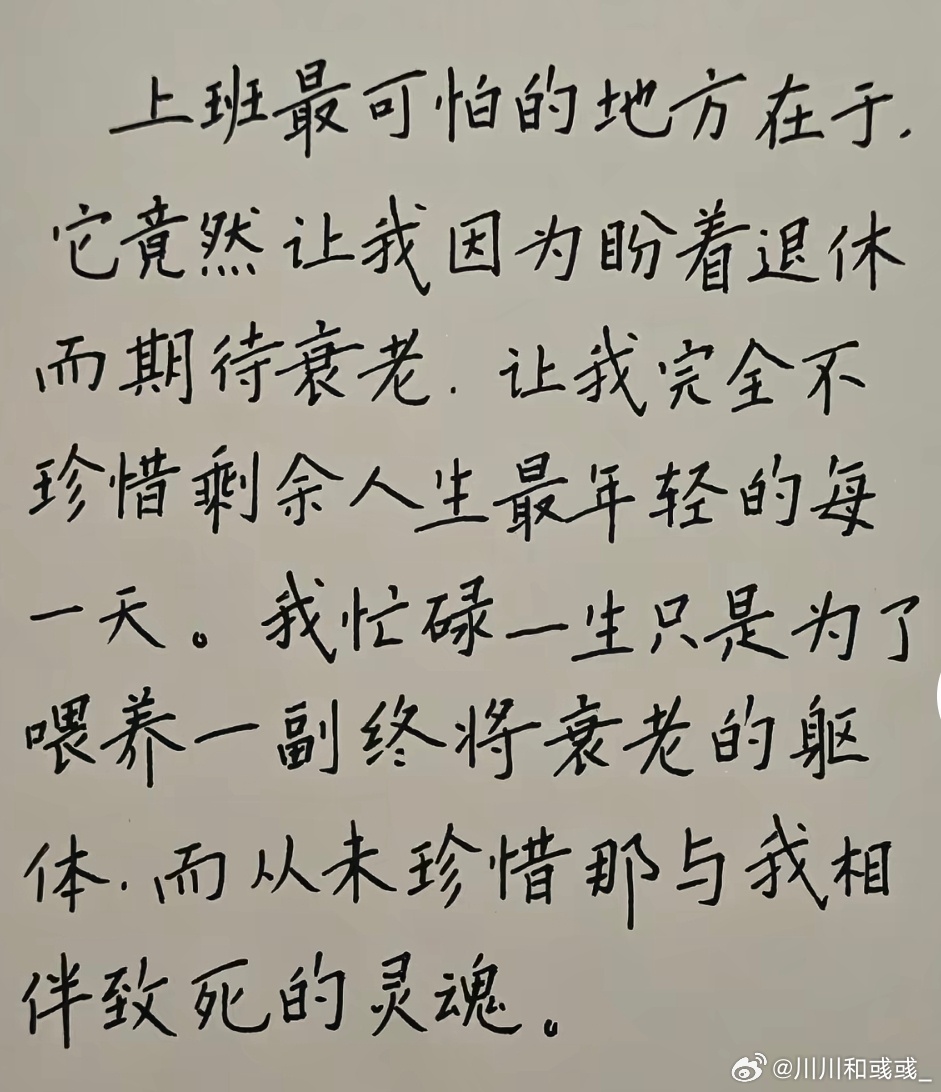 上班最可怕的地方在于,
它竟然让我因为盼着退休
而期待衰老.让我完全不
珍惜剩余人生最年轻的每
一天。我忙碌一生只是为了
喂养一副终将衰老的躯
体.而从未珍惜那与我相
伴致死的灵魂。
@川川和彧彧_